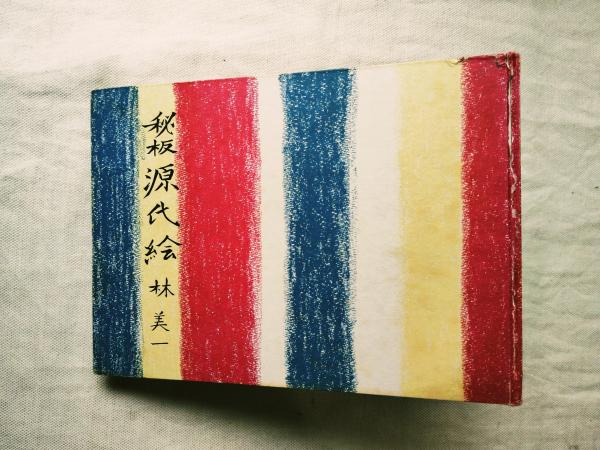 秘板源代絵
林美一